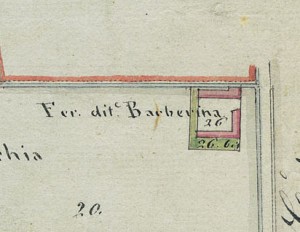 Fer. dit.ᵉ Barberina
26
26. bis
chia
20.